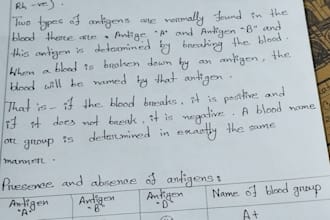 Rh -ve)
Two types of antigens are normally found in the
blood these are • Antige "A" and Antigen "B" and
this antigen is determined by breaking the blood.
When a blood is broken down by an antigen, the
blood will be named by that antigen.
That is - if the blood breaks, it is positive and
if it does not break, it is negative. A blood name
or group is determined in exactly the same
manner.
Presence and absence of antigens:
Antigen "A" Antigen "B" Antigen "D" Name of blood group
A+